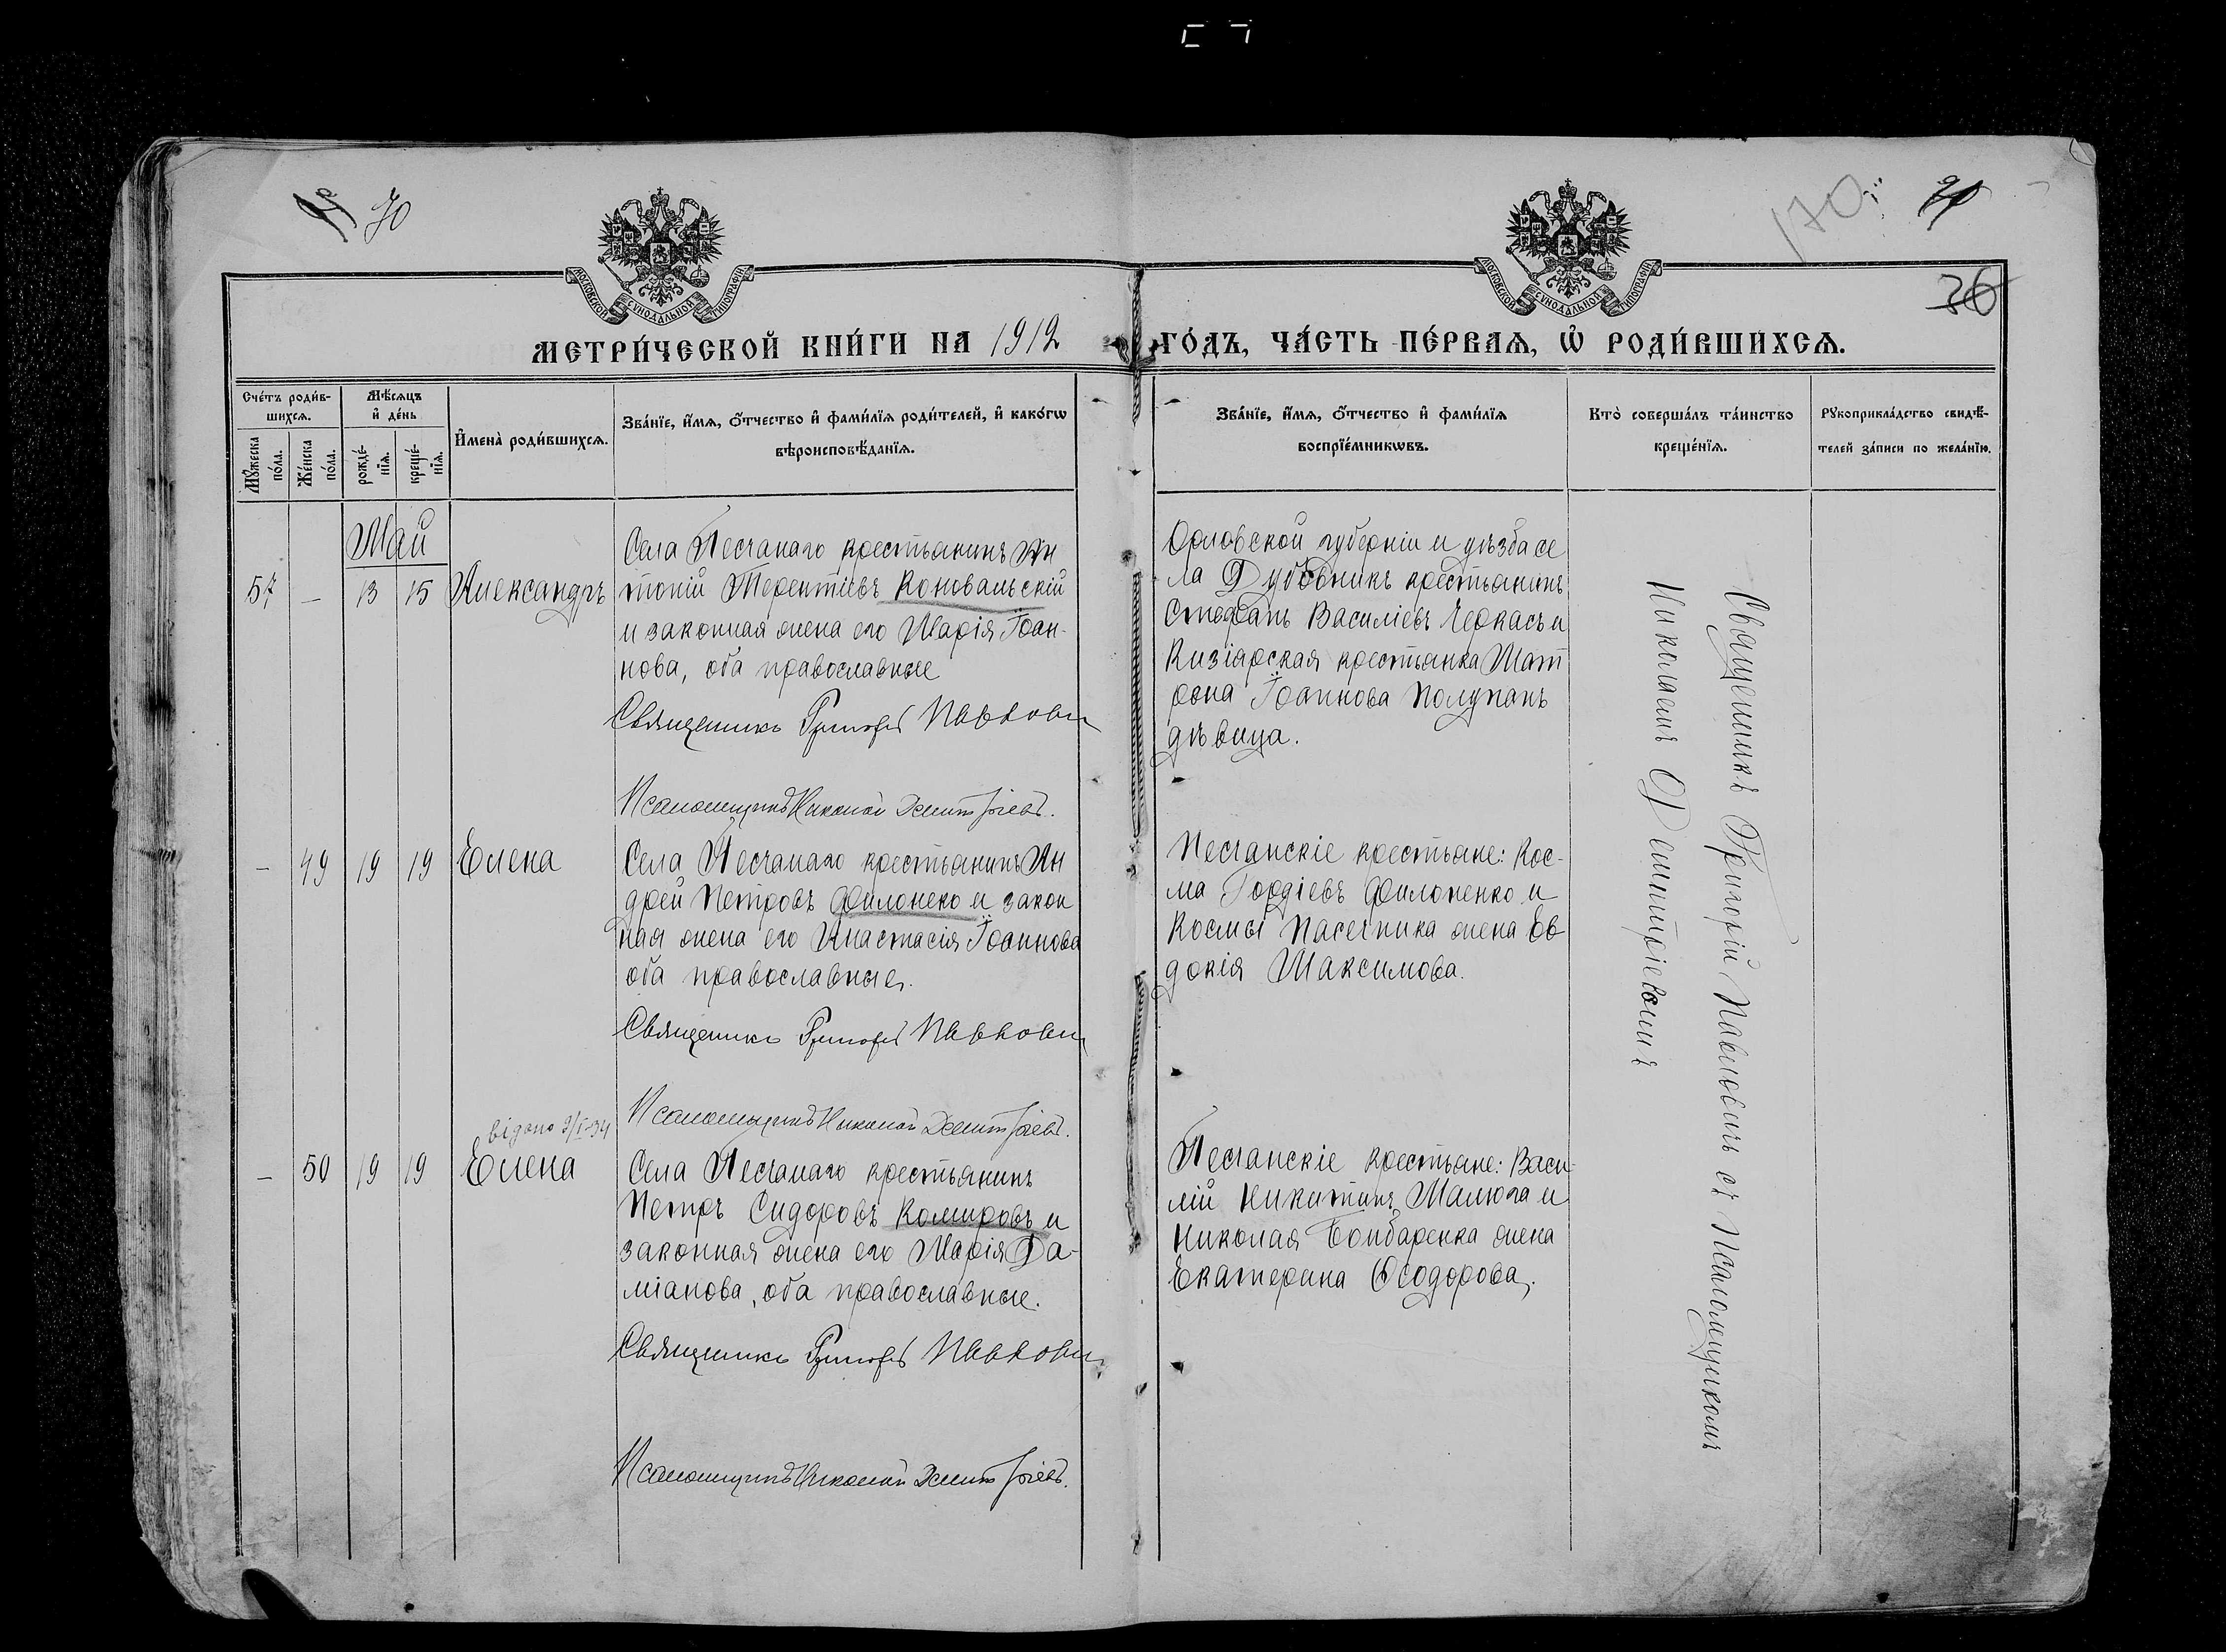 70
170
36
МОСКОВСКОЙ СѴНОДАЛЬНОЙ ТИПОГРАФІИ
МОСКОВСКОЙ СѴНОДАЛЬНОЙ ТИПОГРАФІИ
МЕТРИ́ЧЕСКОЙ КНИ́ГИ НА 1912 ГО́ДЪ, ЧА́СТЬ ПЕ́РВАѦ, Ѡ҆ РОДИ́ВШИХСѦ.
Сче́тъ роди́в-
шихсѧ.
Мꙋ́жеска
по́ла.
Же́нска
по́ла.
Мѣ́сѧцъ
и҆ де́нь
рожде́-
нїѧ.
креще́-
нїѧ.
И҆мена̀ роди́вшихсѧ.
Зва́нїе, и҆́мѧ, ѻ҆́тчество и҆ фами́лїѧ роди́телей, и҆ како́гѡ
вѣроисповѣ́данїѧ.
Зва́нїе, и҆́мѧ, ѻ҆́тчество и҆ фами́лїѧ
воспрїе́мникѡвъ.
Кто̀ соверша́лъ та́инство
креще́нїѧ.
Рꙋкоприкла́дство свидѣ́-
телей за́писи по жела́нїю.
Май
57 — 13 15 Александръ
Села Песчанаго крестьянинъ Ан
тоній Терентіевъ Коновальскій
и законная жена его Марія Іоан-
нова, оба православные
Священникъ Григорій Павлович
Псаломщикъ Николай Димитріевъ.
Орловской губерніи и уѣзда се
ла Дубовикъ крестьянинъ
Стефанъ Василіевъ Черкасъ и
Кизіарская крестьянка Мат
рона Іоаннова Полупанъ
дѣвица.
— 49 19 19 Елена
Села Песчанаго крестьянинъ Ан
дрей Петровъ Филонеко и закон
ная жена его Анастасія Іоаннова
оба православные.
Священникъ Григорій Павлович
Псаломщикъ Николай Димитріевъ.
Песчанскіе крестьяне: Кос-
ма Гордіевъ Филоненко и
Космы Пасечника жена Ев-
докія Максимова.
видано 2/I-34
— 50 19 19 Елена
Села Песчанаго крестьянинъ
Петръ Сидоровъ Комировъ и
законная жена его Марія Да-
міанова, оба православные.
Священникъ Григорій Павлович
Псаломщикъ Николай Димитріевъ.
Песчанскіе крестьяне: Васи-
лій Никитинъ Малюга и
Николая Бондаренка жена
Екатерина Ѳеодорова.
Священникъ Григорій Павловичъ съ Псаломщикомъ
Николаемъ Димитріевымъ